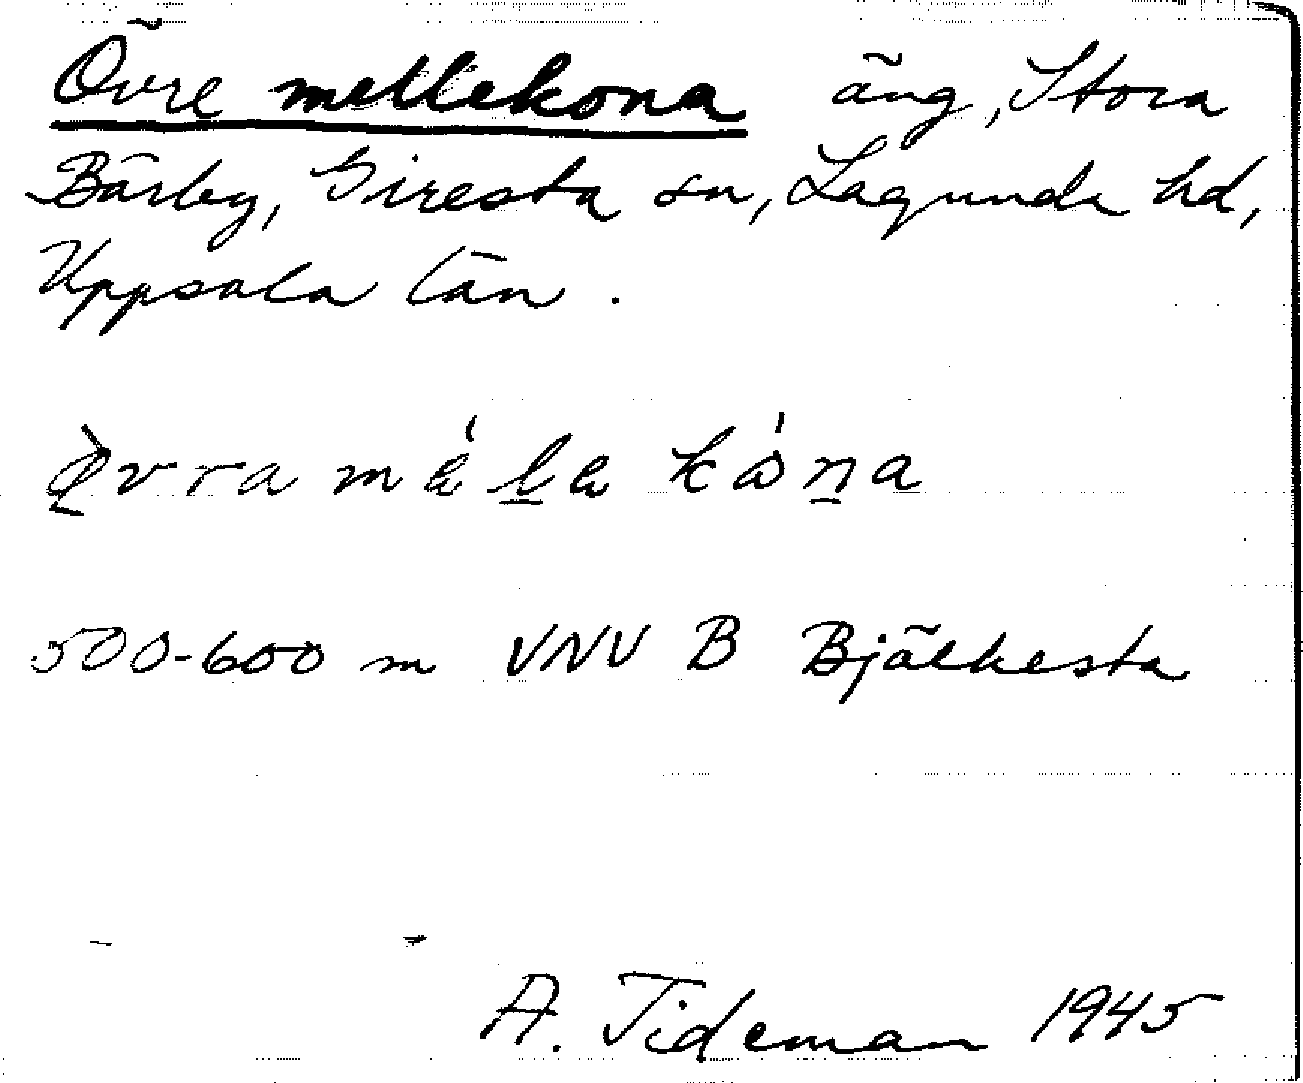 Övre mellekona äng, Stora
Bärby, Giresta sn, Lagunda hd,
Uppsala län.
500-600 m VNV B Bjälkesta
A. Tideman 1945